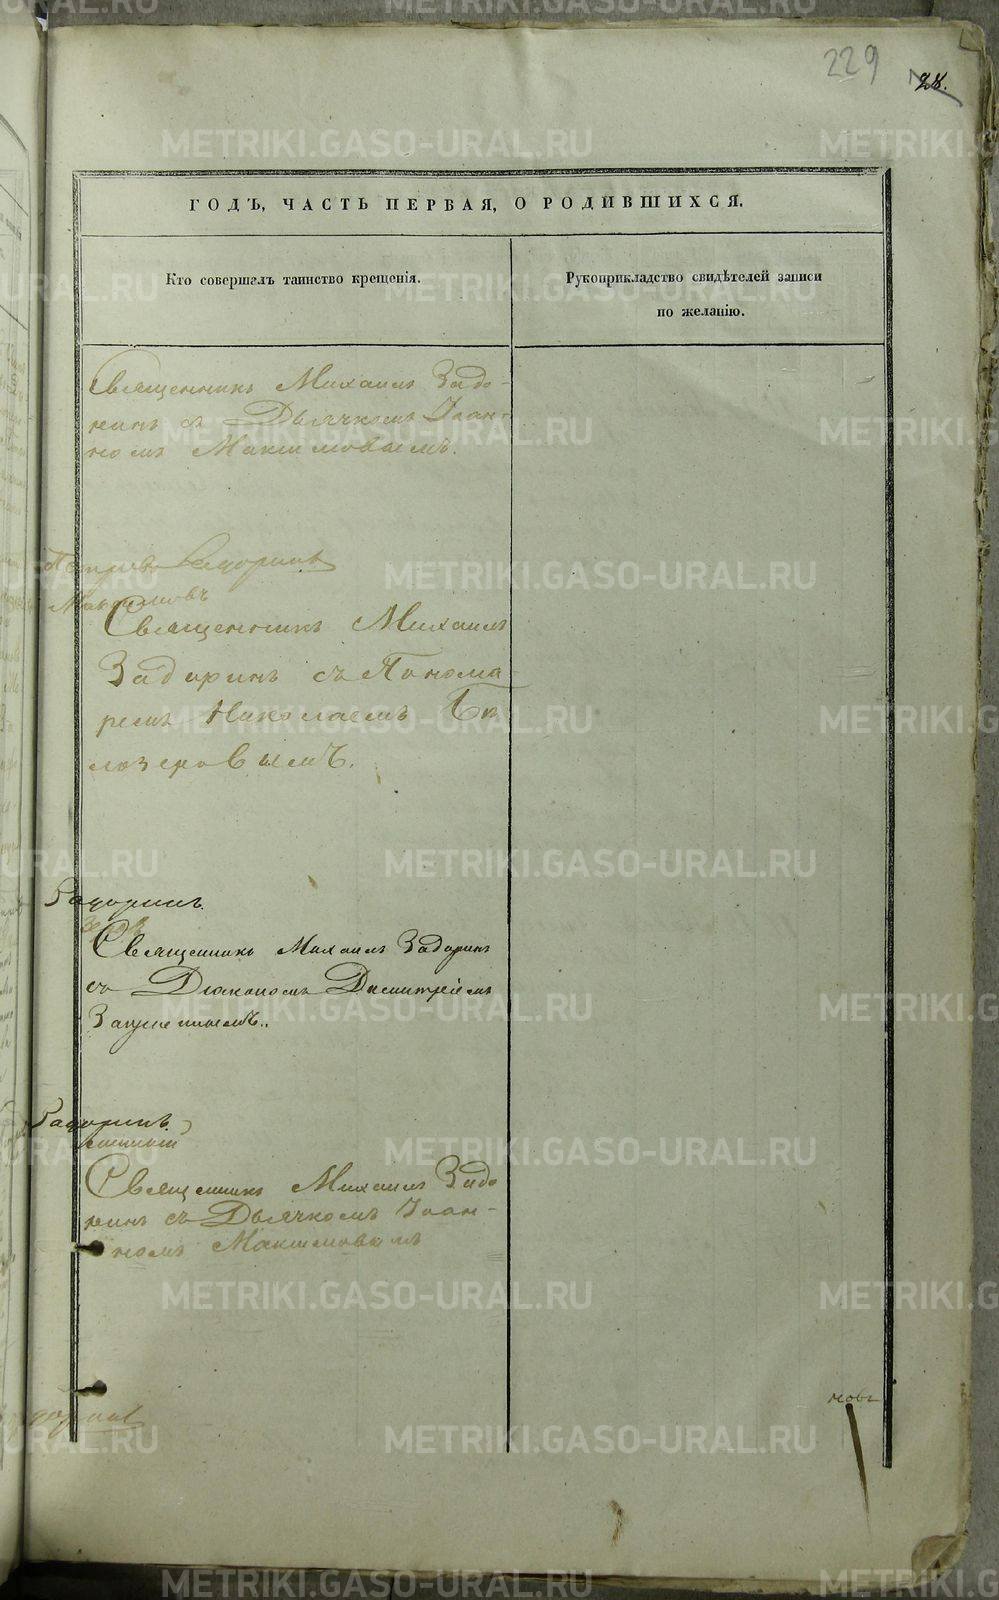 229
28.
ГОДЪ, ЧАСТЬ ПЕРВАЯ, О РОДИВШИХСЯ.
Кто совершалъ таинство крещенія.
Рукоприкладство свидѣтелей записи
по желанію.
Священникъ Михаилъ Задо-
ринъ съ Дьячкомъ Іоан-
номъ Максимовымъ.
Священникъ Михаилъ
Задоринъ съ Понома
ремъ Николаемъ Бѣ
лозеровымъ.
Задоринъ.
Священникъ Михаилъ Задоринъ
съ Діакономъ Димитріемъ
Задоринъ
Священникъ Михаилъ Задо
ринъ съ Дьячкомъ Іоан-
номъ Максимовымъ
METRIKI.GASO-URAL.RU